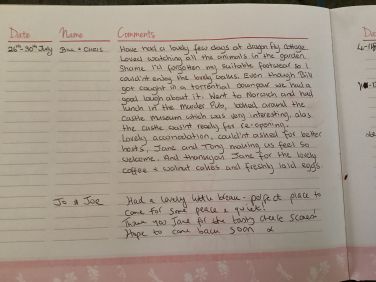 Date Name Comments
26th-30th July Bill & Chris Have had a lovely few days at dragon fly cottage
Loved watching all the animals in the garden.
Shame I'd forgotten my suitable footwear so I
couldn't enjoy the lovely walks. Even though Bill
got caught in a torrential downpour we had a
good laugh about it. Went to Norwich and had
lunch in the Murder Pub, looked around the
castle museum which was very interesting, alas
the castle wasn't ready for re-opening.
Lovely accomodation, couldn't asked for better
hosts, Jane and Tony making us feel so
welcome. And thankyou Jane for the lovely
coffee & walnut cakes and freshly laid eggs.
Jo & Joe Had a lovely little break - perfect place to
come for some peace & quiet!
Thank you Jane for the tasty cheese scones
Hope to come back soon x